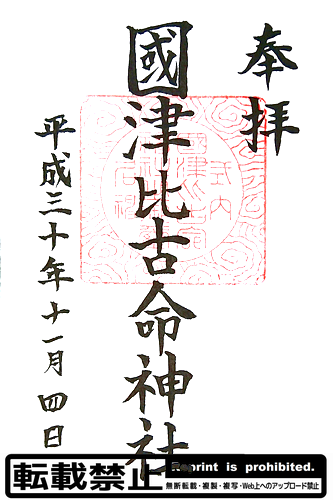 奉拝
國津比古命神社
式内
平成三十年十一月四日
転載禁止
Reprint is prohibited.
無断転載・複製・複写・Web上へのアップロード禁止